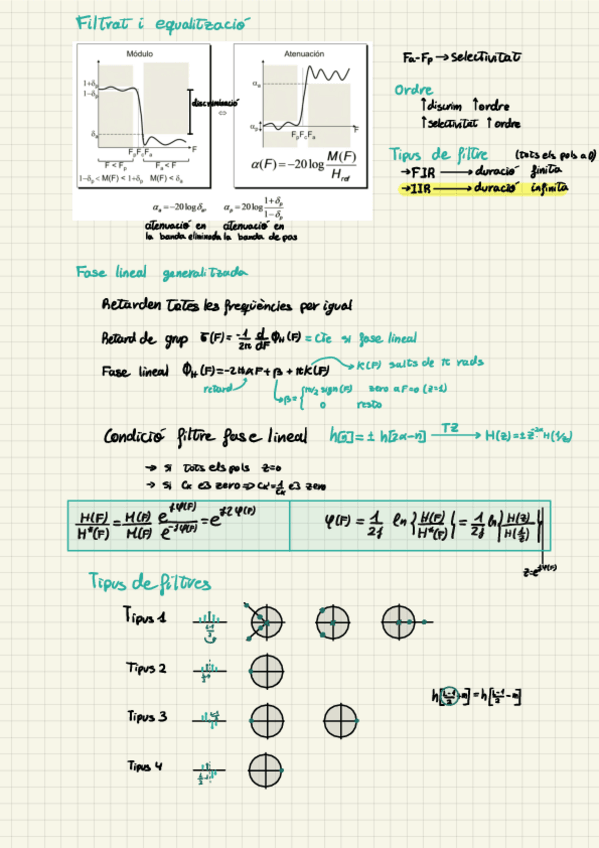 Filtrat i equalització
Módulo
1+δp
1-δp
δa
Fp Fc Fa
F
F < Fp
Fa < F
1-δp < M(F) < 1+δp
M(F) < δa
discriminació
⇔
Atenuación
αa
αp
Fp Fc Fa
F
α(F) = -20 log M(F) / Href
αa = -20 log δa,
αp = 20 log (1+δp) / (1-δp)
atenuació en la banda eliminada
atenuació en la banda de pas
Fa-Fp → selectivitat
Ordre
↑ discrim ↑ ordre
↑ selectivitat ↑ ordre
Tipus de filtre (tots els pols a 0)
→ FIR → duració finita
→ IIR → duració infinita
Fase lineal generalitzada
Retarden totes les freqüències per igual
Retard de grup σ(F) = -1/2π d/dF ΦH(F) = cte si fase lineal
Fase lineal ΦH(F) = -2παF + β + πK(F)
→ K(F) salts de π rads
retard
β = { π/2 sign(F) zero a F=0 (z=1)
0 resto
Condició filtre fase lineal h[n] = ± h[2α-n] TZ → H(z) = ± z^-2α H(1/z)
→ si tots els pols z=0
→ si cx és zero => cx' = 1/cx és zero
H(F)/H*(F) = M(F)/M(F) e^jφ(F)/e^-jφ(F) = e^j2φ(F)
φ(F) = 1/2j ln { H(F)/H*(F) } = 1/2j ln { H(z)/H(1/z) }
Tipus de filtres
Tipus 1
Tipus 2
Tipus 3
Tipus 4
h[L-1/2+n] = h[L-1/2-n]